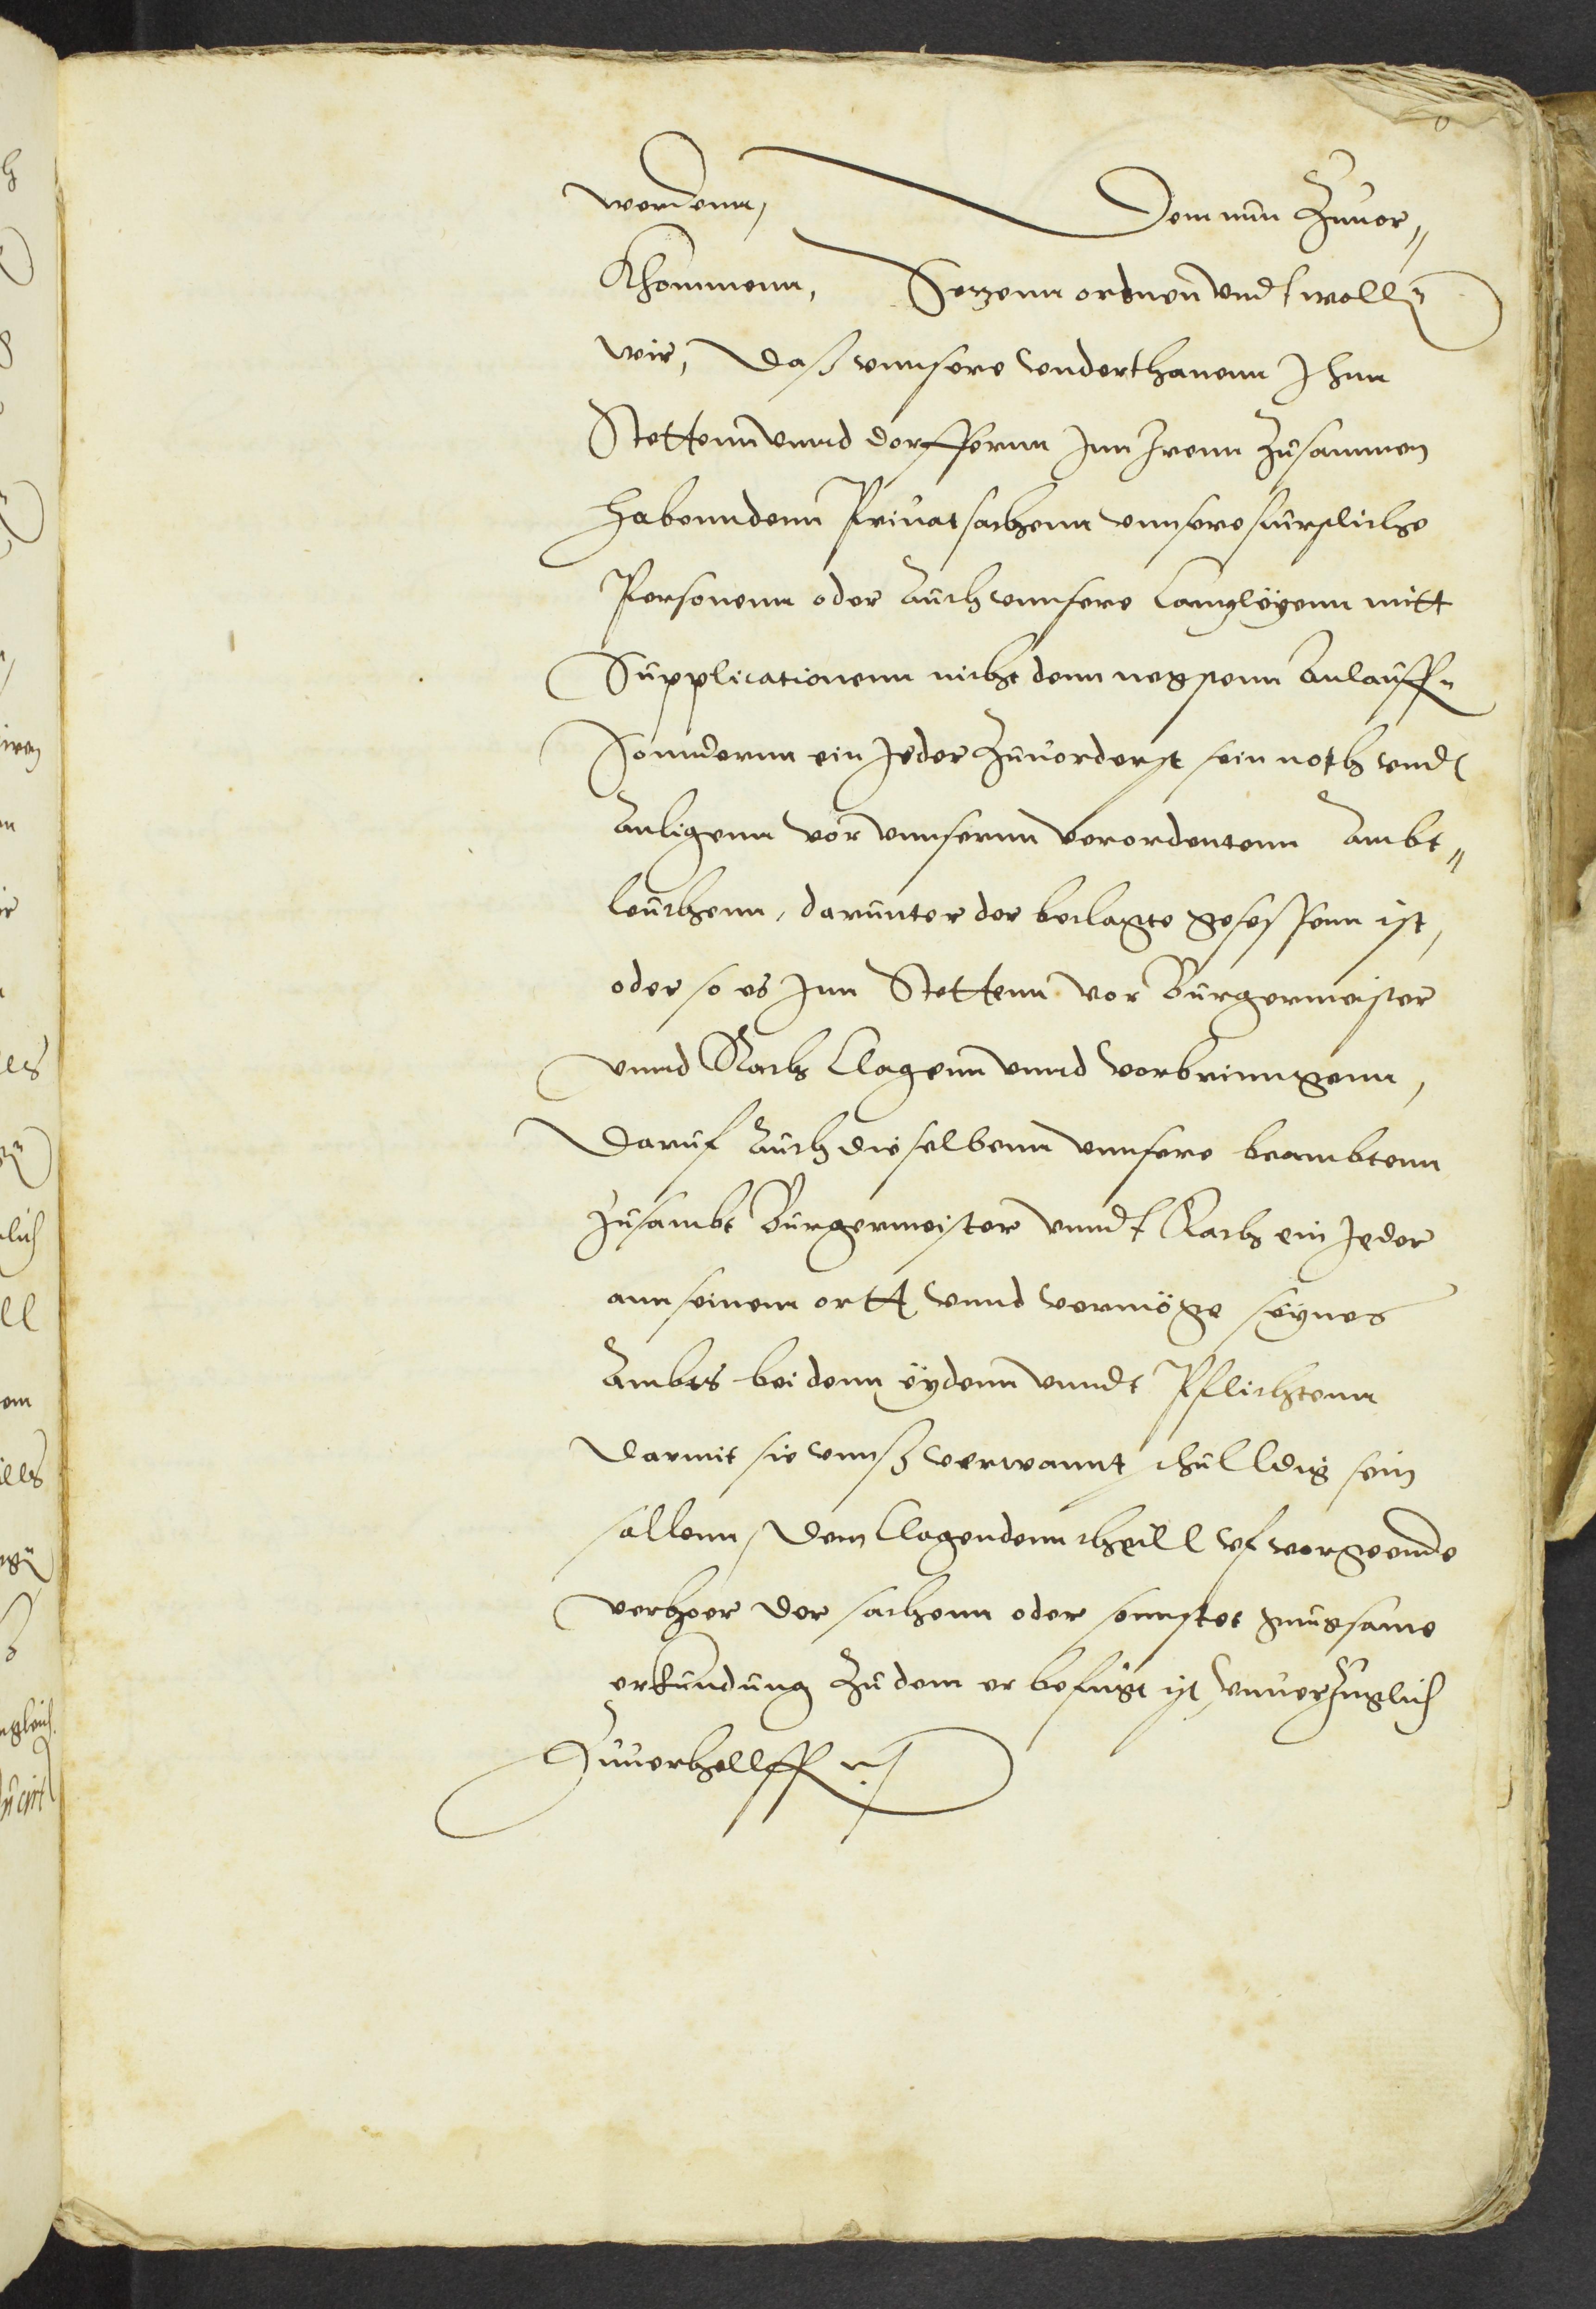 werdenn, Dem nun Zuuor¬
Khommenn, Setzenn ordnen vndt wollen
wir, Daß vnnsere vnderthanenn Ihnn
Stettenn vnnd dorffernn Inn Irenn Zusammen
habenndenn Priuatsachenn vnnsere fürstliche
Personenn oder auch vnnsere Cantzleyenn mitt
Supplicationenn nicht denn negstenn anlauffen
Sonndernn ein Jeder Zuuorderst sein noth vndt
anligenn vor vnnsernn verordentenn Ambt¬
leuthenn, darunter der beclagte gesessenn ist,
oder so es Inn Stettenn vor Burgermeister
vnnd Rath Clagenn vnnd vorbrinngenn,
Daruf auch dieselbenn vnnsere beambtenn
Zusambt Burgermeister vnndt Rath ein Jeder
ann seinem ortt vnnd vermöge seynes
Ambts bei denn eydenn vnndt Pflichtenn
Darmit sie vnnß verwannt schulldig sein
sollenn, Dem Clagendenn theill vf vorgeende
verhoer der sachenn oder sonnstet gnugsame
erkundung Zu dem er befugt ist, vnuerzuglich
Zuuerhellffen
ls
lich
ll
em